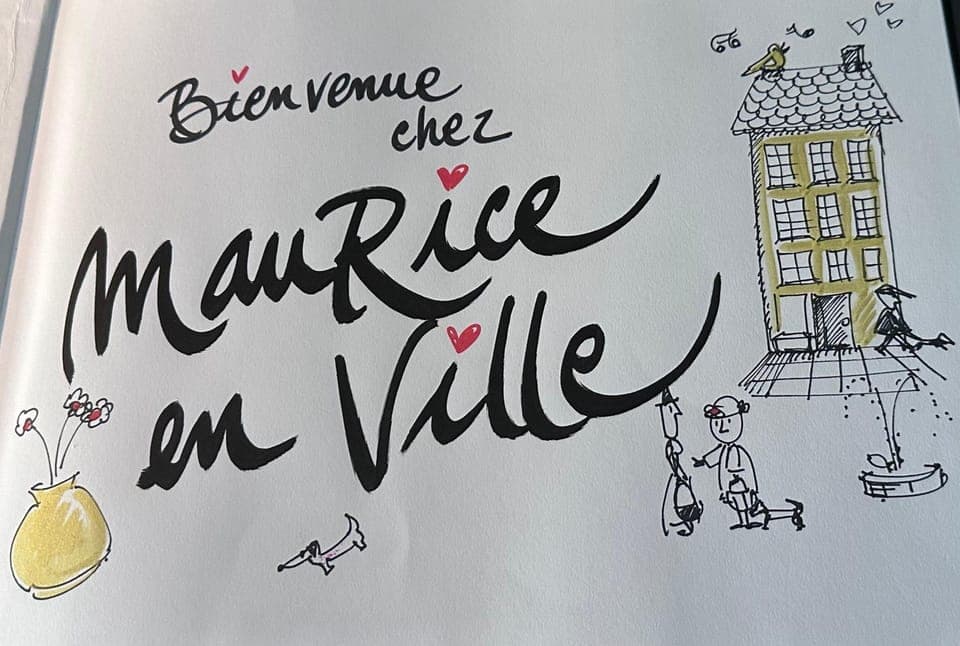 Bienvenue
chez
MauRice
en Ville